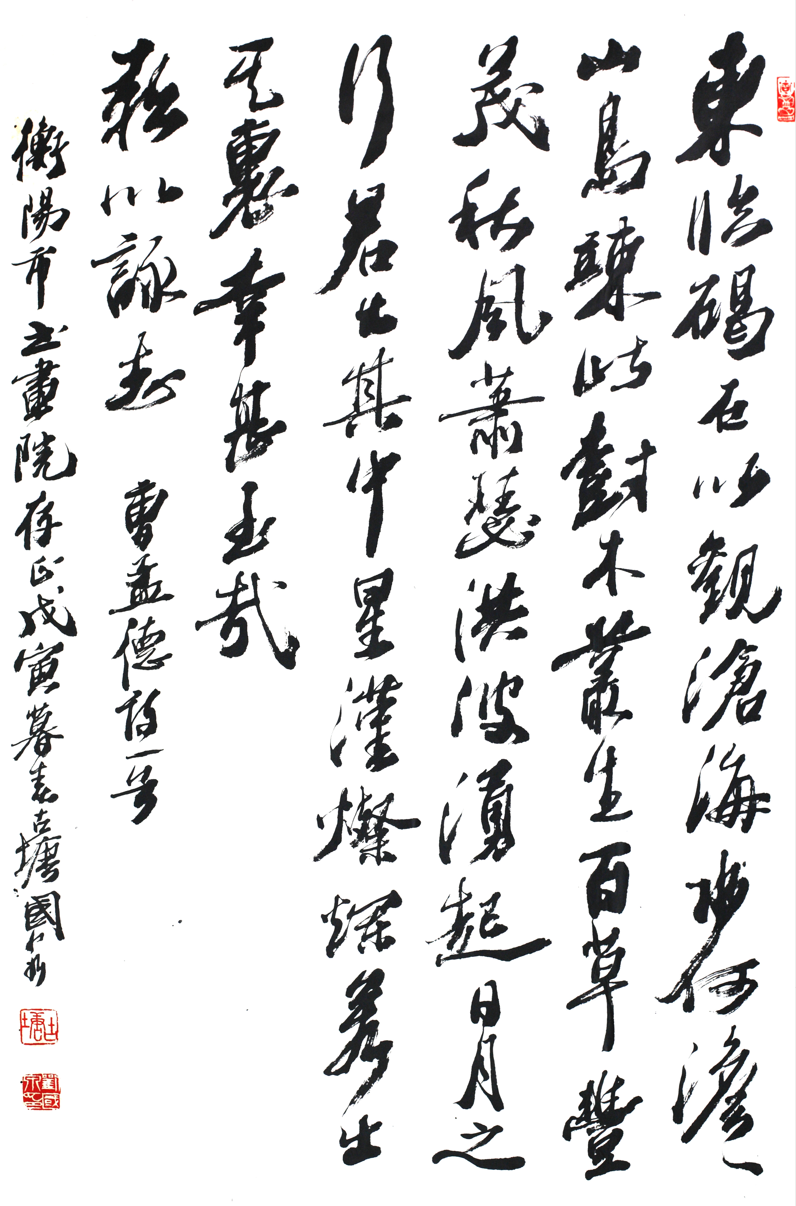 東臨碣石以觀滄海水何澹〻
山島竦峙樹木叢生百草豐
茂秋風蕭瑟洪波湧起日月之
行若出其中星漢燦爛若出
其裏幸甚至哉
歌以詠志 曹孟德詩一首
衡陽市书畫院存正戊寅暮春古塘國